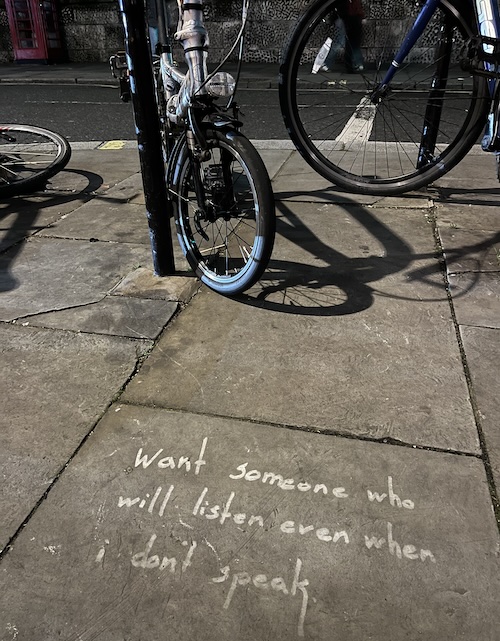 Want someone who
will listen even when
i don't speak.